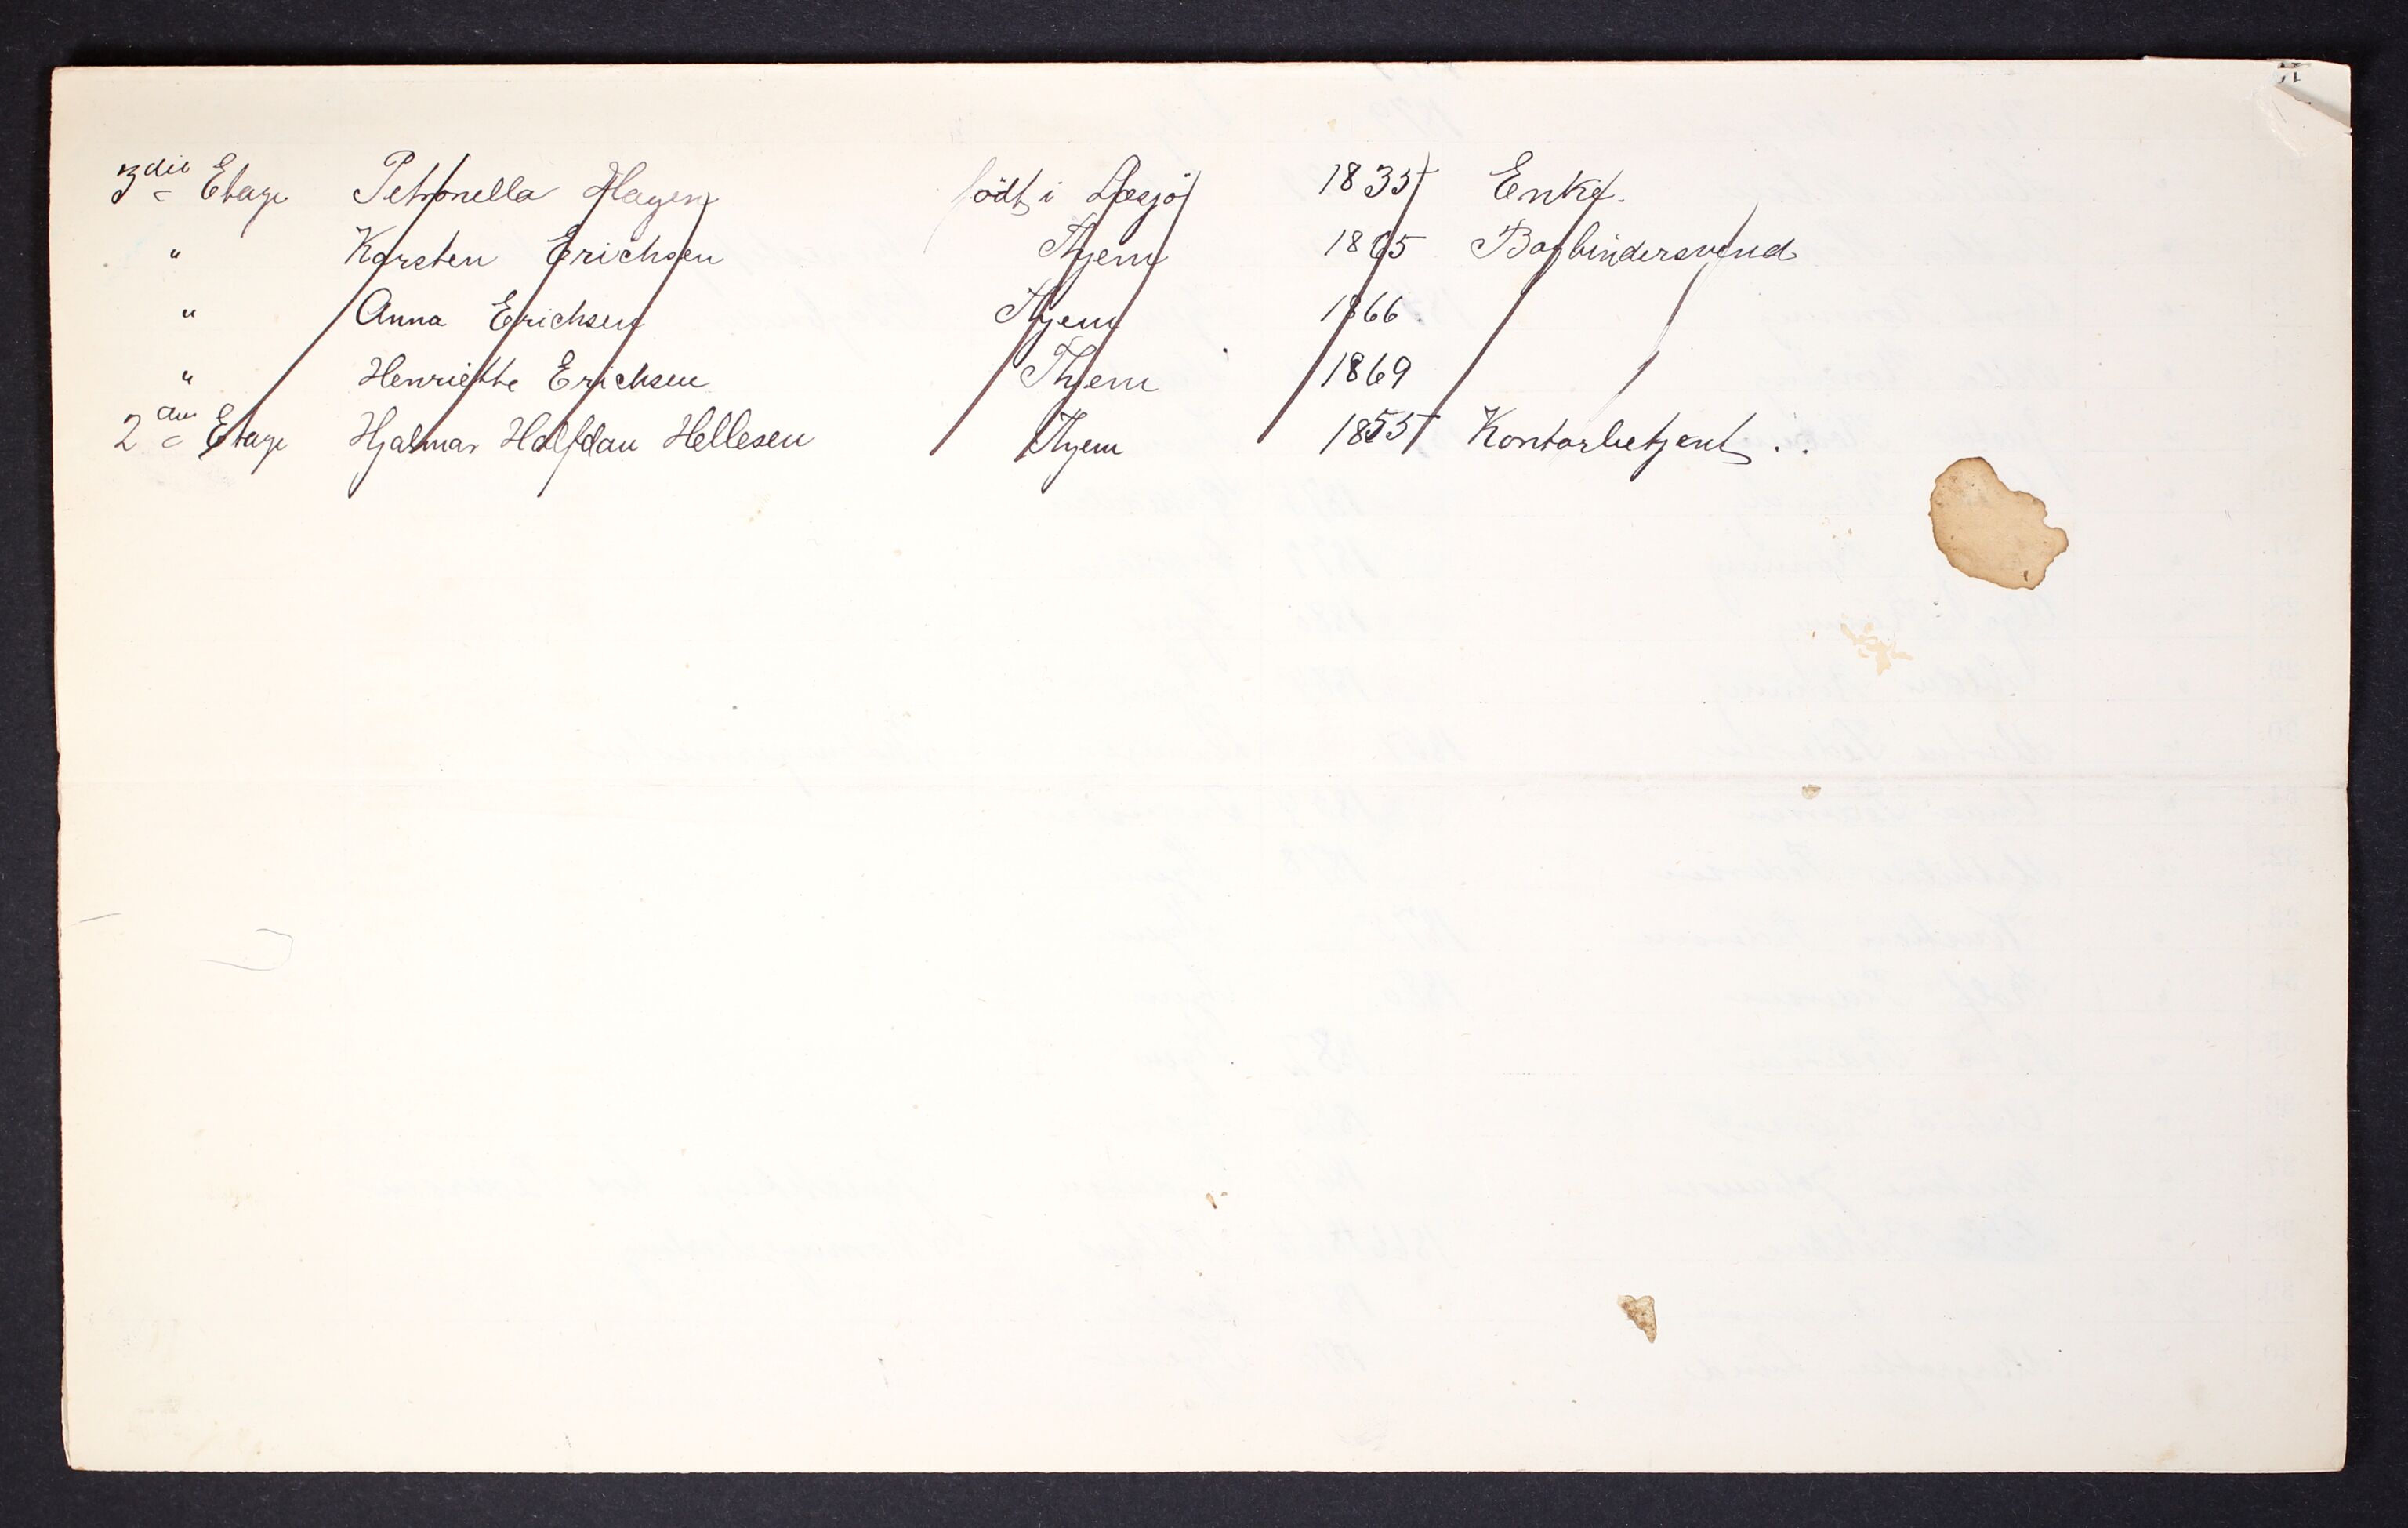 3die Etage Petronella Hagen födt i Læsjö 1835 Enke.
" Karsten Erichsen Thjem 1865 Bogbindersvend
" Anna Erichsen Thjem 1866
" Henriette Erichsen Thjem 1869
2den Etage Hjalmar Halfdan Hellesen Thjem 1855 Kontorbetjent.